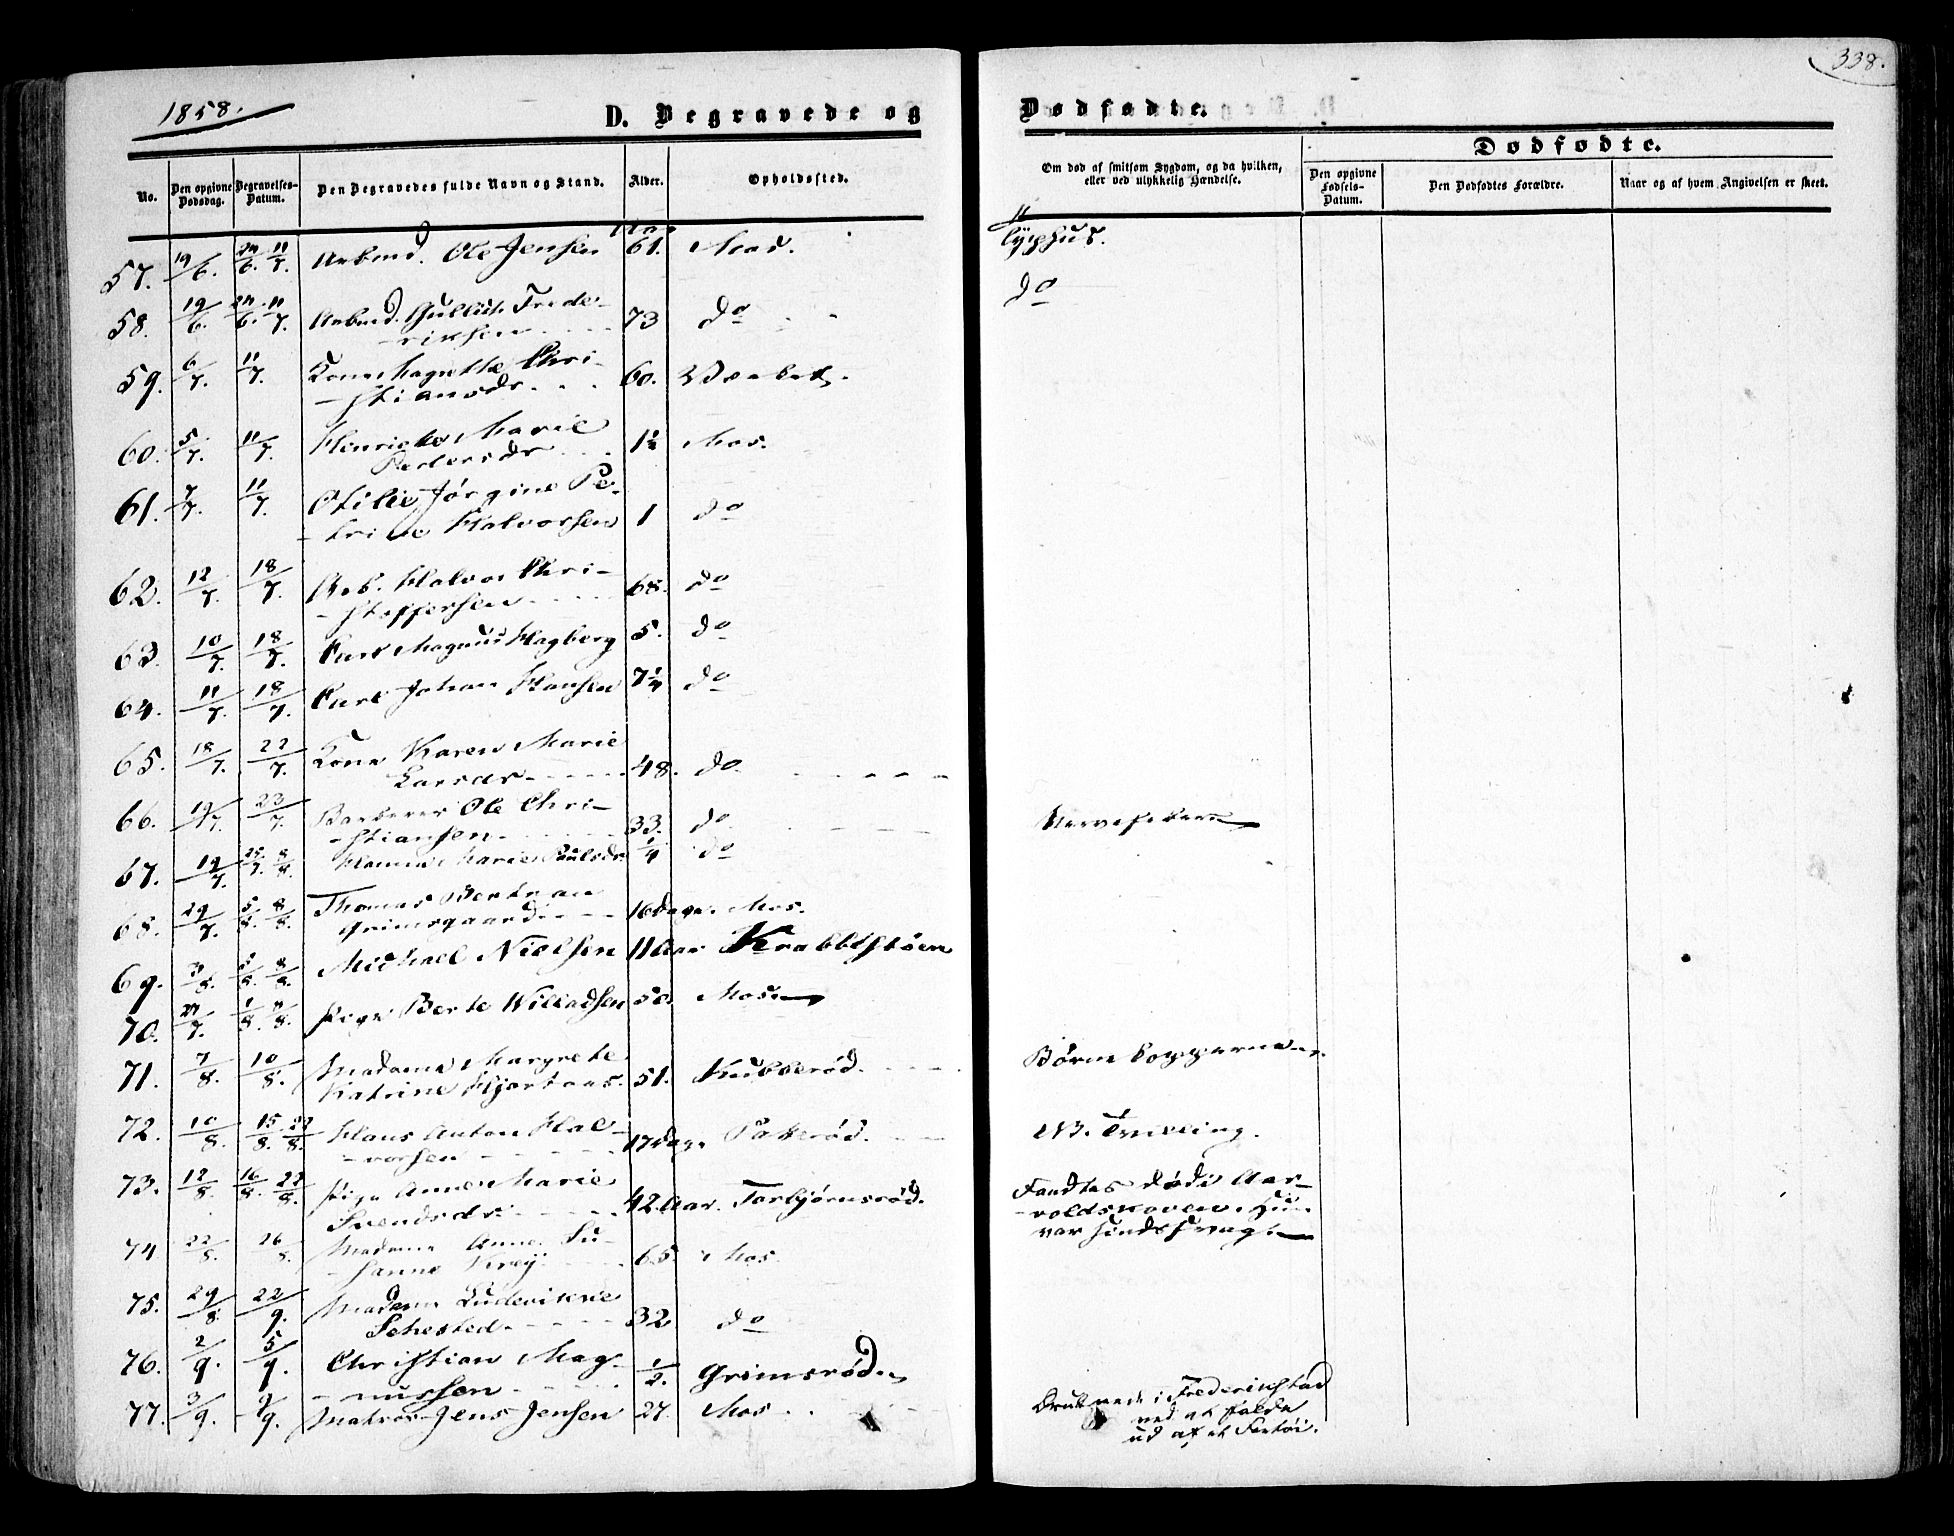 338.
1858.
D. Begravede og
Dødfødte.
No.
Den opgivne Dødsdag.
Begravelses-Datum.
Den Begravedes fulde Navn og Stand.
Alder.
Opholdssted.
Om død af smitsom Sygdom, og da hvilken, eller ved ulykkelig Hændelse.
Dødfødte.
Den opgivne Fødsels-Datum.
Den Dødfødtes Forældre.
Naar og af hvem Angivelsen er skeet.
57. 19/6. 24/6. 11/7. Arbmd. Ole Jensen 61. Mos. Typhus.
58. 19/6. 24/6. 11/7. Arbmd. Frede-
riksen 73 do do
59. 6/7. 11/7. Kone Magrethe Chri-
stiansdr. 60.
60. 5/7. 11/7. Henrikke Marie
Pedersdr 1½ Mos.
61. 7/7. 11/7. Otilie Jørgine Pe-
trine Halvorsen 1 do
62. 12/7. 18/7. Arb. Halvor Chri-
stoffersen 68. do
63. 10/7. 18/7. Carl Magnus Hagberg 5. do
64. 11/7. 18/7. Carl Johan Hansen 7¼ do
65. 18/7. 22/7. Kone Karen Marie
Larsdr 48. do
66. 19/7. 23/7. Barberer Ole Chri-
stiansen 33. do Nervefeber
67. 19/7. 25/7. 8/8. Hanna Marie Paulsdr ¼ do
68. 29/7. 5/8. 8/8. Thomas Bertran
Grimsgaard 16 Dage. Mos.
69. 3/8. 5/8. 8/8. Michael Nielsen 11 Aar Krabbestøen
70. 27/7. 1/8. 8/8. Pige Berte Willadsen 50. Mos
71. 7/8. 10/8. Madame Margrete
Katrine Hjortaas. 51. Kubberød. Børnekopperne
72. 10/8. 15/8. 22/8. Hans Anton Hal-
vorsen 17 Dage Patterød. NB. Tvilling.
73. 12/8. 16/8. 22/8. Pige Anne Marie
Svendsdr. 42 Aar. Torbjørnsrød. Fandtes død i Aar-
voldskoven. Hun
var sindssvag.
74. 22/8. 26/8. Madame Anne Su-
sanne Krey. 65. Mos
75. 29/8. 22/9. Madame Ludevikke
Sehested 32 do
76. 2/9. 5/9. Christian Mag-
nussen ½. Grimsrød.
77. 3/9. 9/9. Matros Jens Jensen 27. Mos Druknede i Frederikstad
ved at falde
ud af et Fartøi.